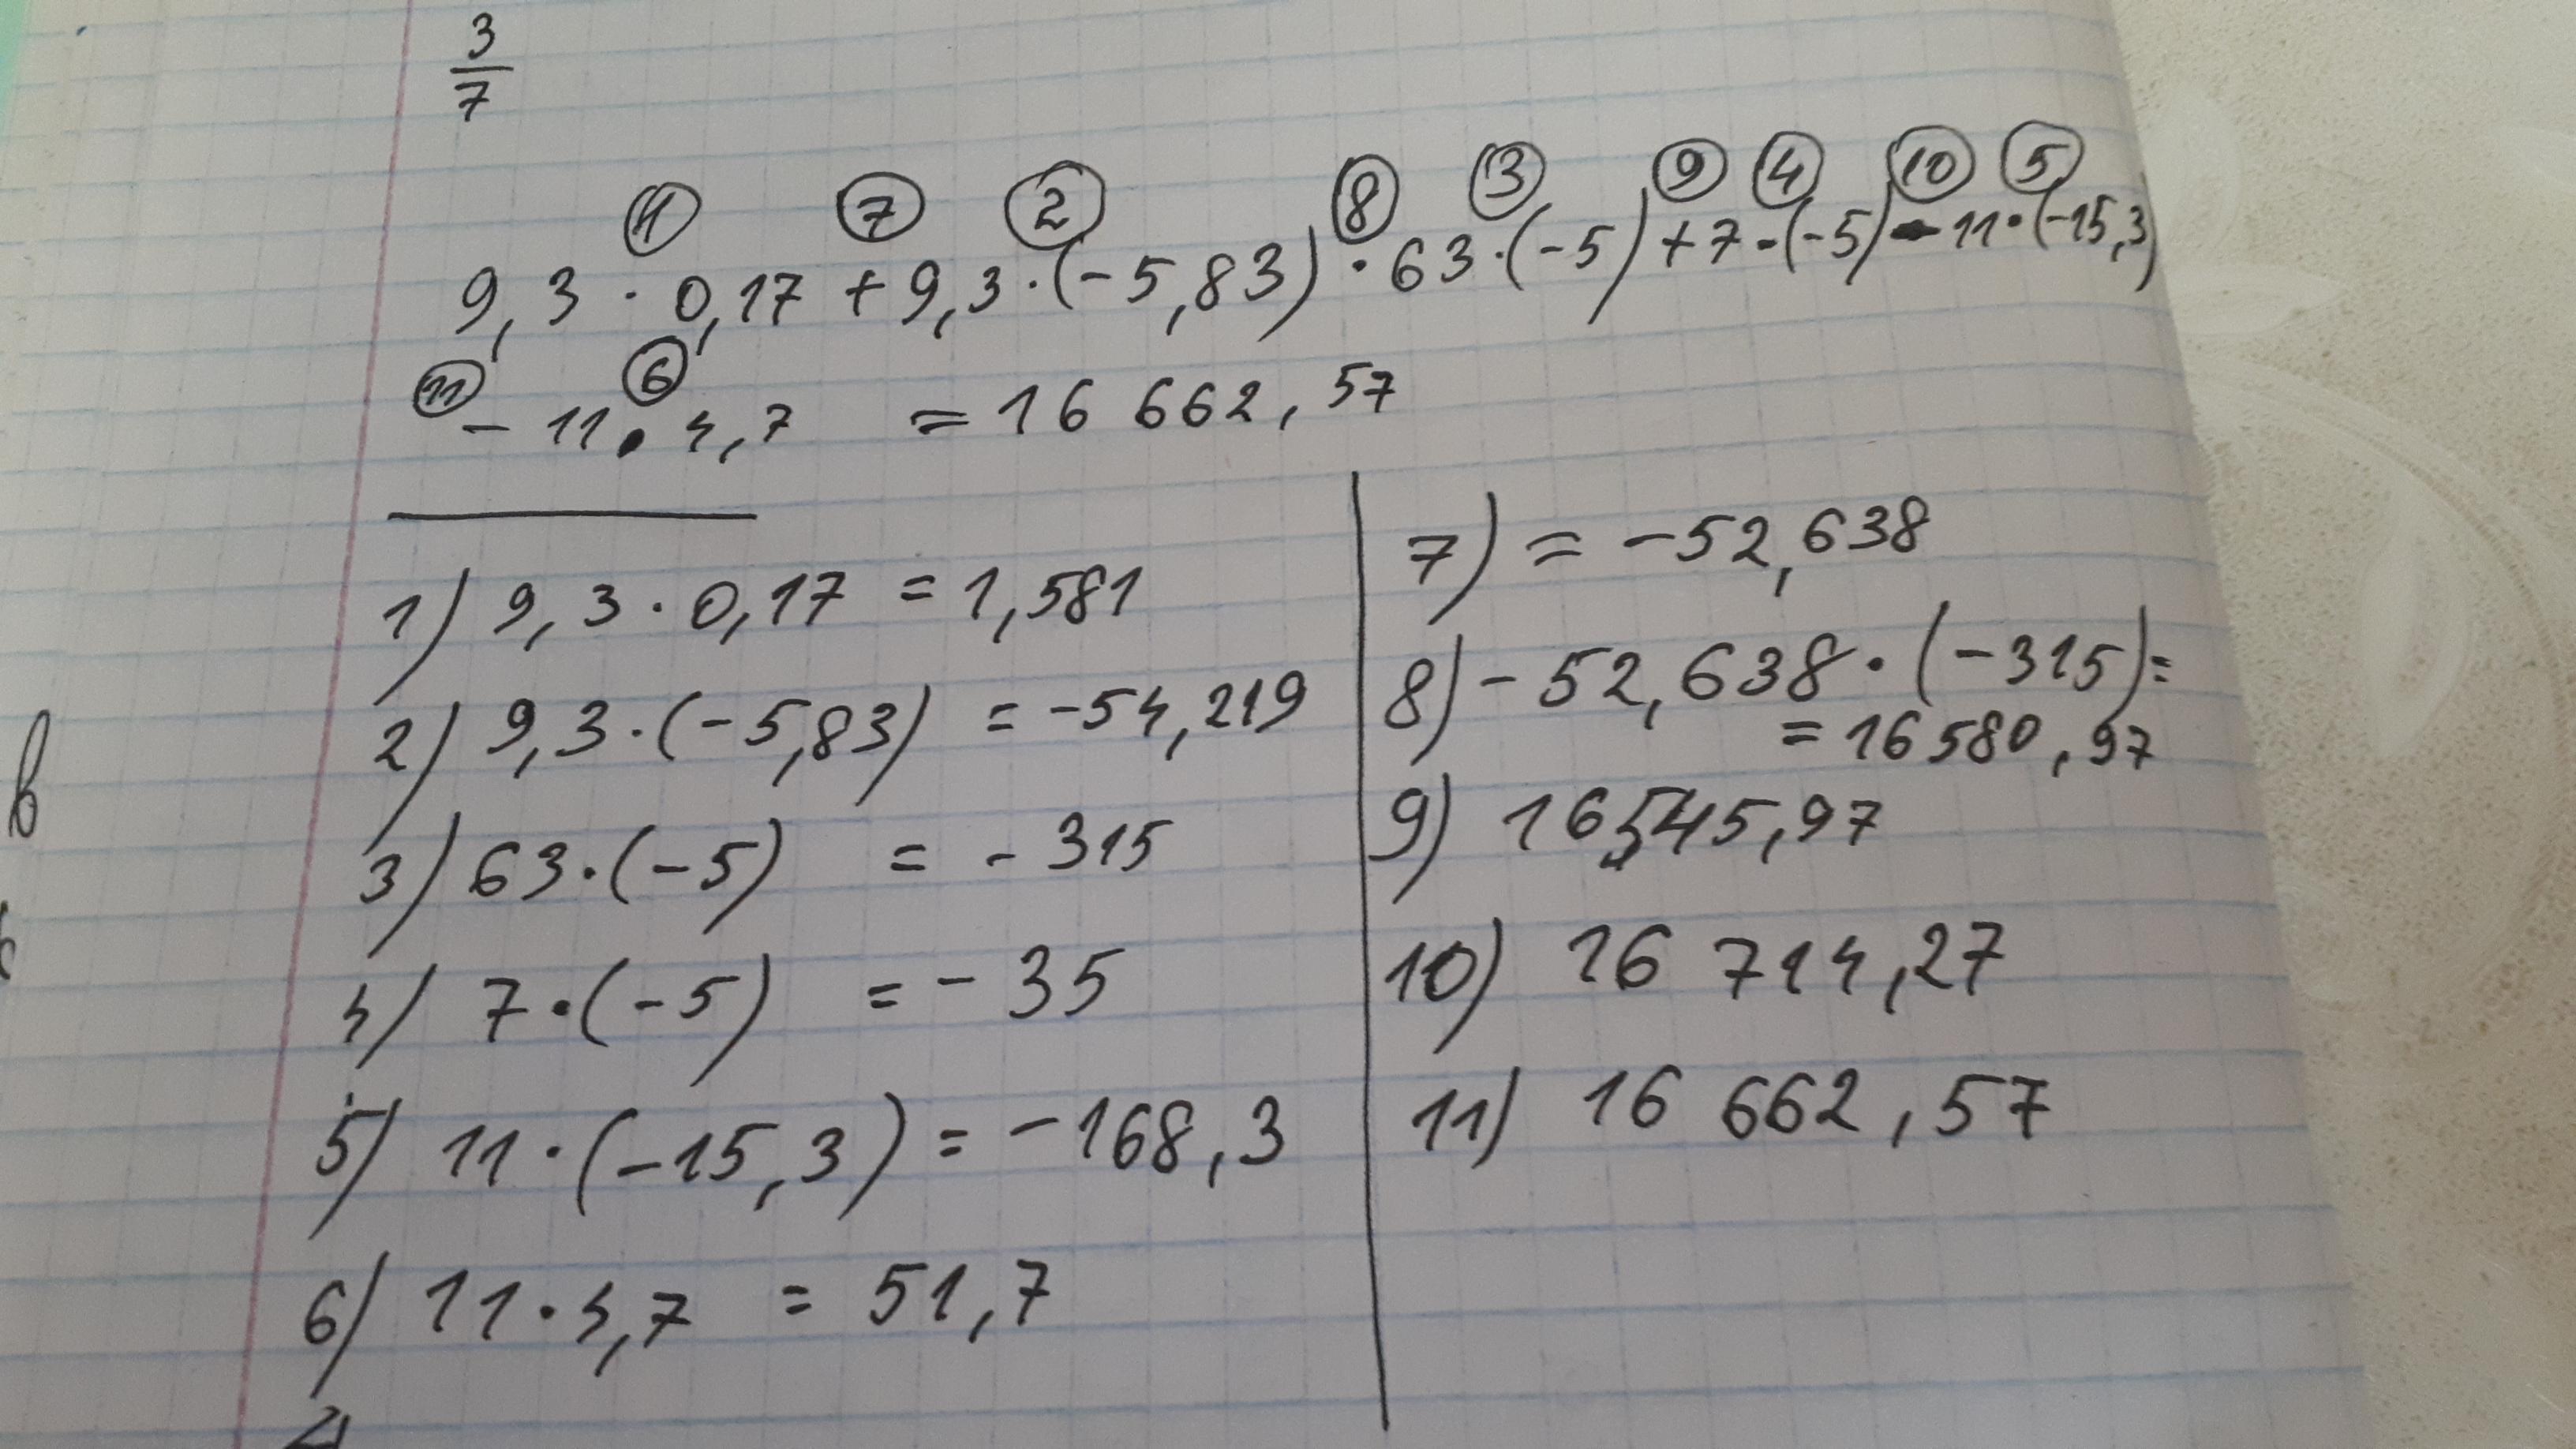 3
7
1 7 2 8 3 9 4 10 5
9,3 · 0,17 + 9,3 · (-5,83) · 63 · (-5) + 7 · (-5) - 11 · (-15,3)
11 6
- 11 · 4,7 = 16 662,57
1) 9,3 · 0,17 = 1,581
2) 9,3 · (-5,83) = -54,219
3) 63 · (-5) = - 315
4) 7 · (-5) = - 35
5) 11 · (-15,3) = -168,3
6) 11 · 4,7 = 51,7
7) = -52,638
8) - 52,638 · (-315) =
= 16580,97
9) 16545,97
10) 16 714,27
11) 16 662,57